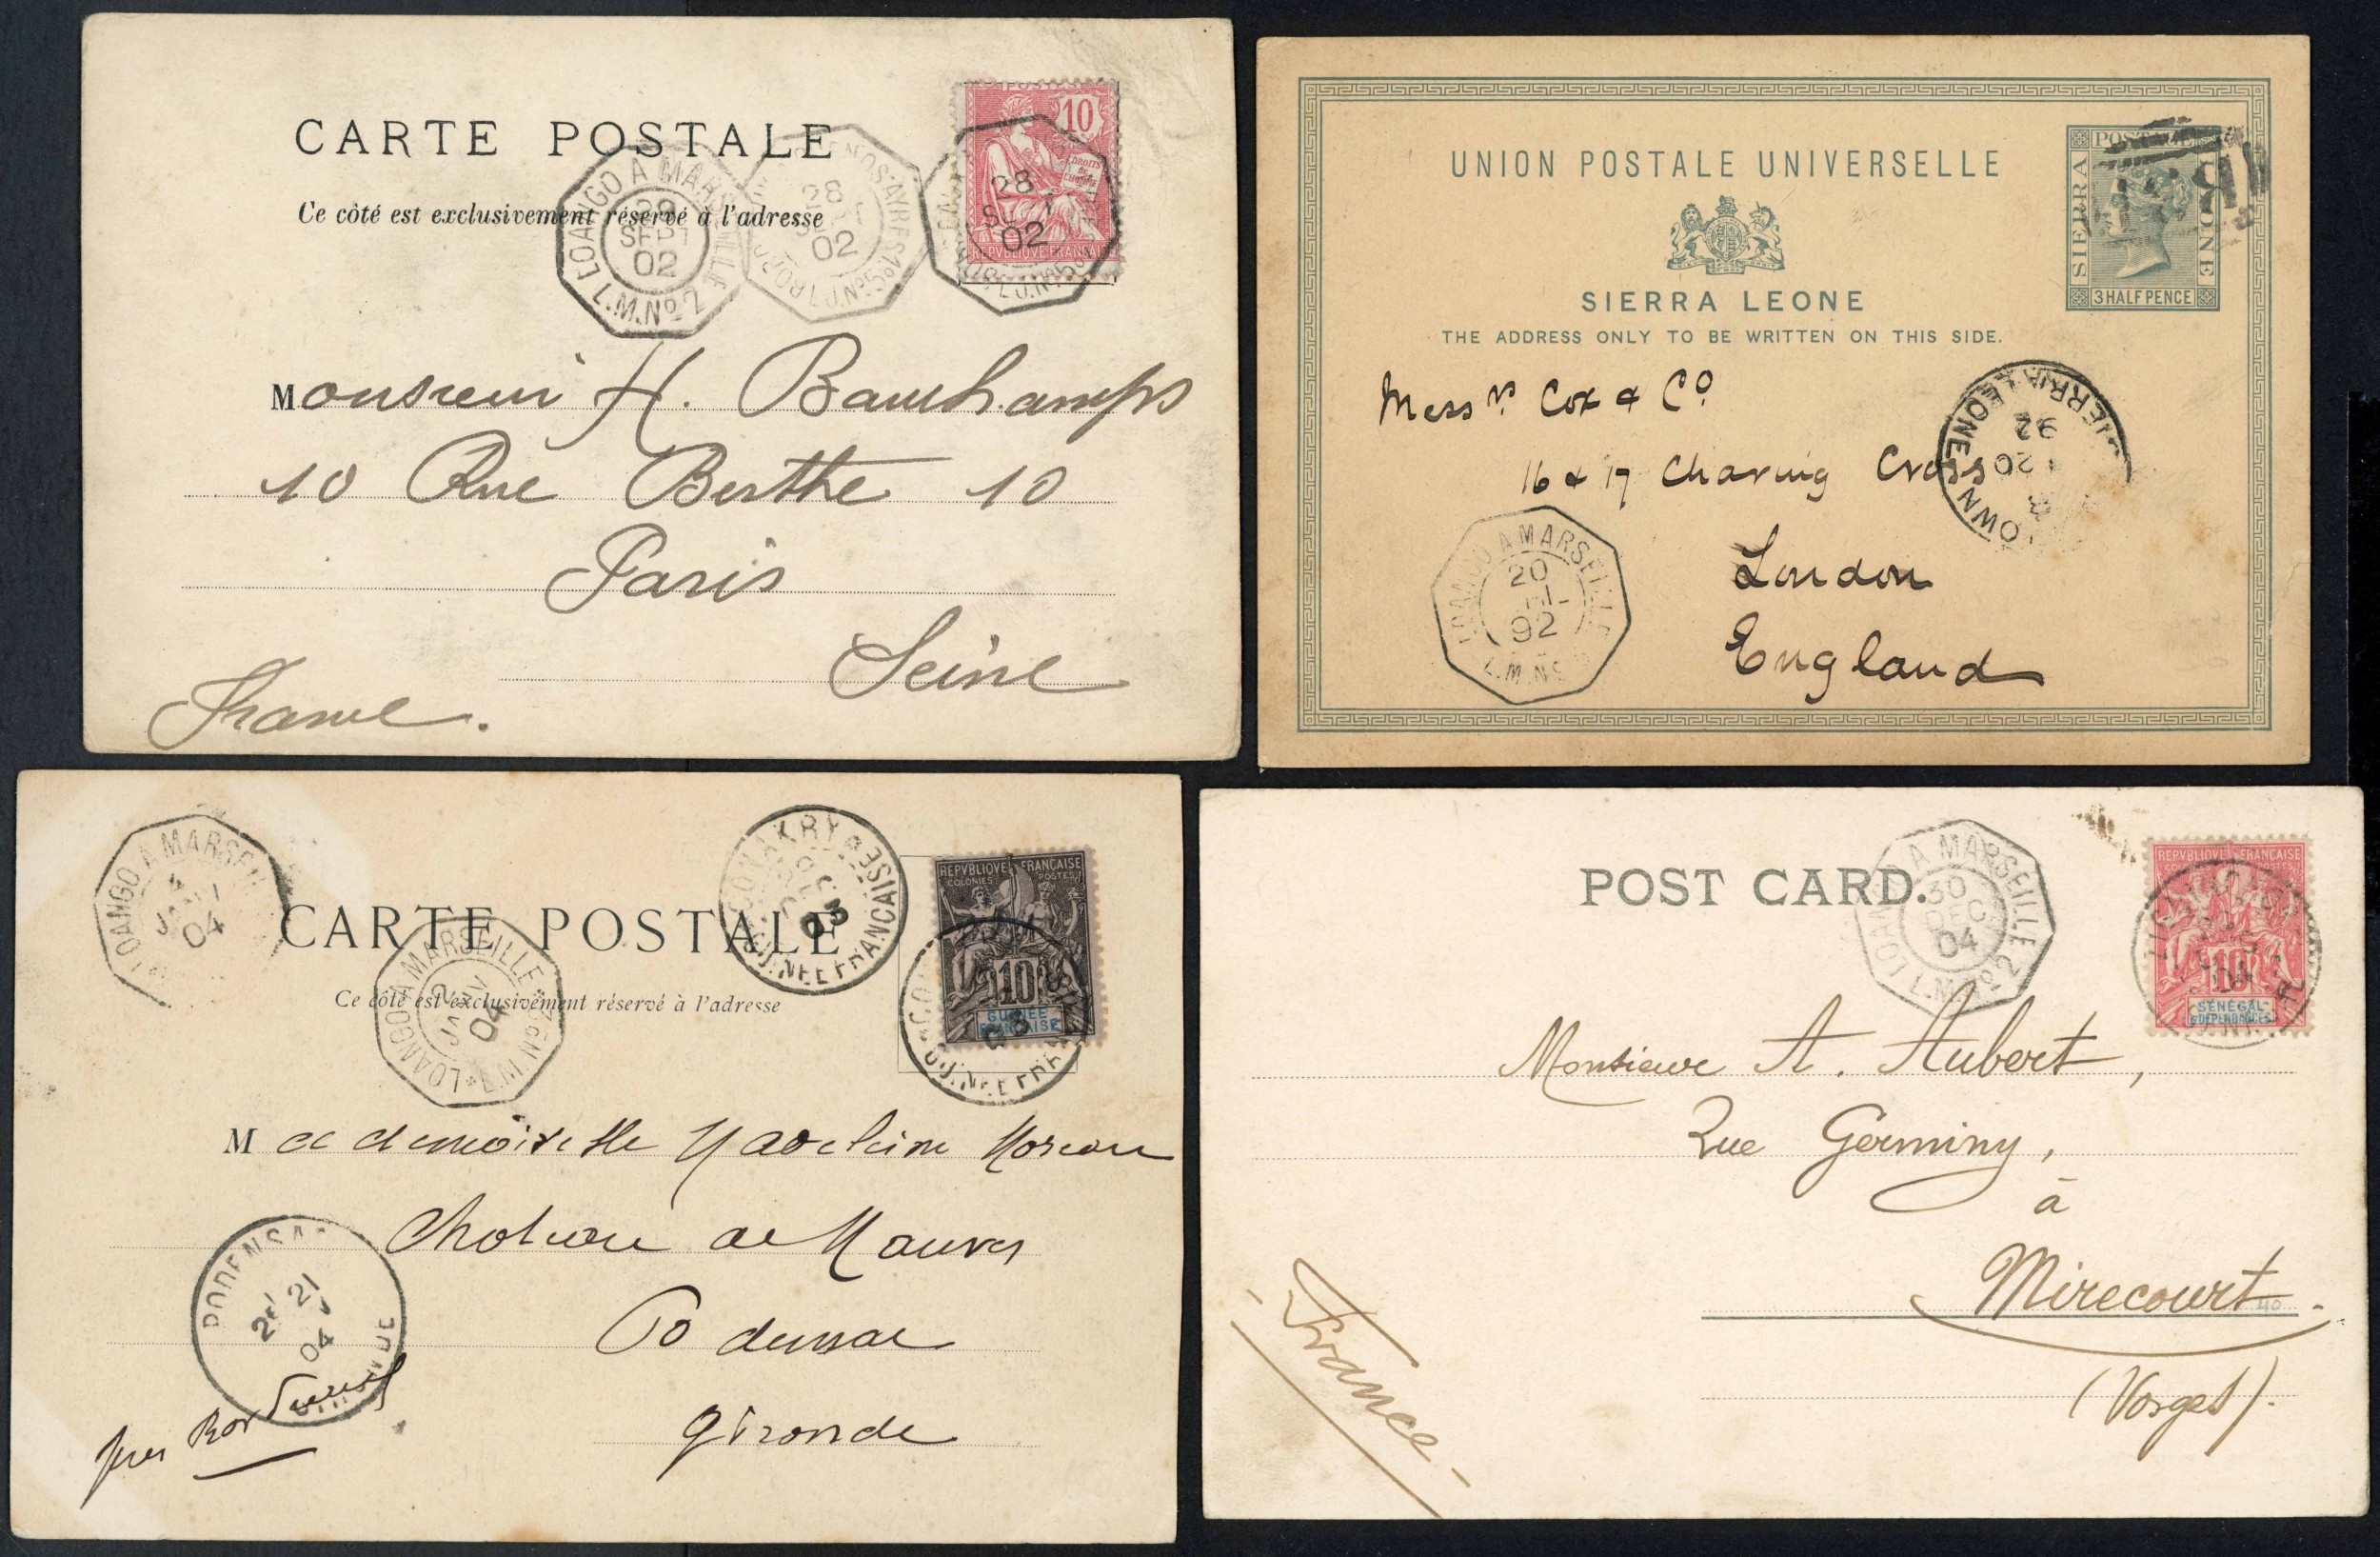 CARTE POSTALE
Ce côté est exclusivement réservé à l'adresse
10
DROITS DE L'HOMME
REPVBLIQVE FRANÇAISE
LOANGO A MARSEILLE
29
SEPT
02
L.M.No 2
28
SEPT
02
28
SEPT
02
Monsieur H. Bauchamps
10 Rue Berthe 10
Paris
Seine
France.
UNION POSTALE UNIVERSELLE
SIERRA LEONE
THE ADDRESS ONLY TO BE WRITTEN ON THIS SIDE.
POSTAGE
SIERRA LEONE
3 HALF PENCE
Messrs Cox & Co
16 & 17 Charing Cross
London
England
SIERRA LEONE
20
92
LOANGO A MARSEILLE
20
92
L.M.No
CARTE POSTALE
Ce côté est exclusivement réservé à l'adresse
LOANGO A MARSEILLE
04
LOANGO A MARSEILLE
2
JANV
04
L.M.No 2
CONAKRY
03
GUINÉE FRANÇAISE
REPVBLIQVE FRANÇAISE
COLONIES POSTES
10
GUINÉE
FRANÇAISE
Mademoiselle Madeleine Moreau
Podensac
Gironde
près Bordeaux
PODENSAC
21
04
GIRONDE
POST CARD.
LOANGO A MARSEILLE
30
DEC
04
L.M.No 2
REPVBLIQVE FRANÇAISE
10
SÉNÉGAL
& DÉPENDANCES
Monsieur A. Aubert,
Rue Germiny,
à
Mirecourt.
(Vosges).
- France -